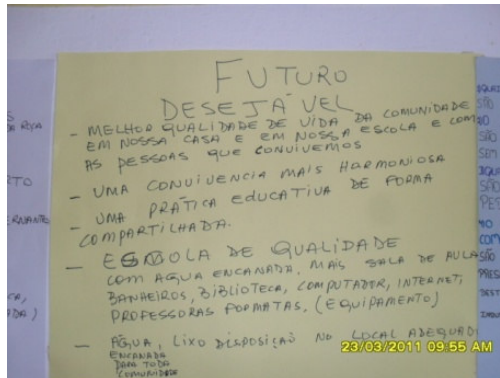 FUTURO
DESEJÁVEL
- MELHOR QUALIDADE DE VIDA DA COMUNIDADE
EM NOSSA CASA E EM NOSSA ESCOLA E COM
AS PESSOAS QUE CONVIVEMOS
- UMA CONVIVENCIA MAIS HARMONIOSA
- UMA PRÁTICA EDUCATIVA DE FORMA
COMPARTILHADA.
- ESCOLA DE QUALIDADE
COM AGUA ENCANADA, MAIS SALA DE AULA
BANHEIROS, BIBLIOTECA, COMPUTADOR, INTERNET,
PROFESSORAS FORMATAS, (EQUIPAMENTO)
- ÁGUA, LIXO DISPOSIÇÃO NO LOCAL ADEQUADO
ENCANADA
PARA TODA
COMUNIDADE
23/03/2011 09:55 AM